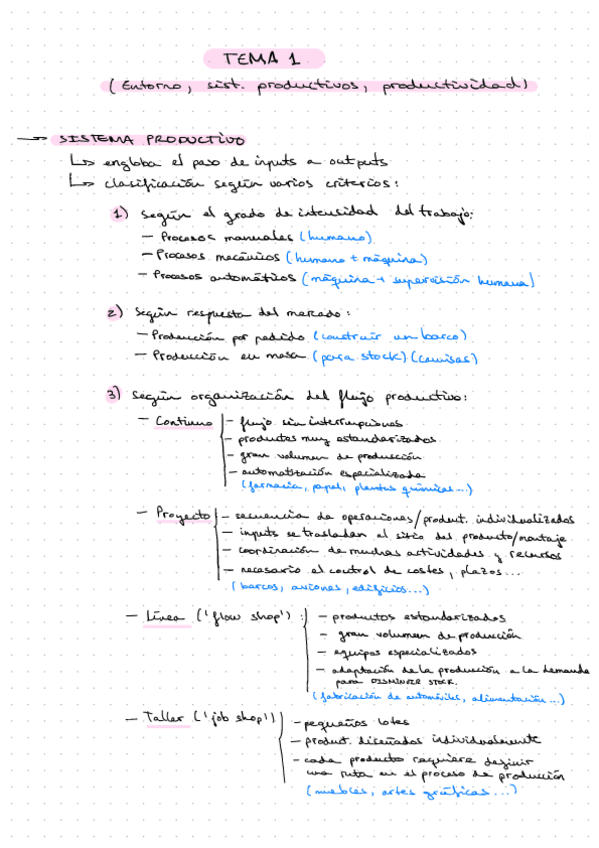 TEMA 1
(Entorno, sist. productivos, productividad)
→ SISTEMA PRODUCTIVO
↳ engloba el paso de inputs a outputs
↳ clasificación según varios criterios:
1) según el grado de intensidad del trabajo:
- Procesos manuales (humano)
- Procesos mecánicos (humano + máquina)
- Procesos automáticos (máquina + supervisión humana)
2) Según respuesta del mercado:
- Producción por pedido (construir un barco)
- Producción en masa (para stock) (camisas)
3) Según organización del flujo productivo:
- Continuo - flujo sin interrupciones
- productos muy estandarizados
- gran volumen de producción
- automatización especializada
(farmacia, papel, plantas químicas...)
- Proyecto - secuencia de operaciones/product. individualizados
- inputs se trasladan al sitio del producto/montaje
- coordinación de muchas actividades y recursos
- necesario el control de costes, plazos...
(barcos, aviones, edificios...)
- Línea ('flow shop'): - productos estandarizados
- gran volumen de producción
- equipos especializados
- adaptación de la producción a la demanda
para DISMINUIR STOCK.
(fabricación de automóviles, alimentación...)
- Taller ('job shop') - pequeños lotes
- product. diseñados individualmente
- cada producto requiere definir
una ruta en el proceso de producción
(muebles, artes gráficas...)